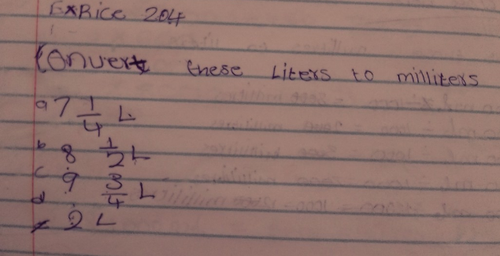 ExRice 204
Convert these Liters to milliters
a 7 1/4 L
b 8 1/2 L
c 9 3/4 L
d 2 L